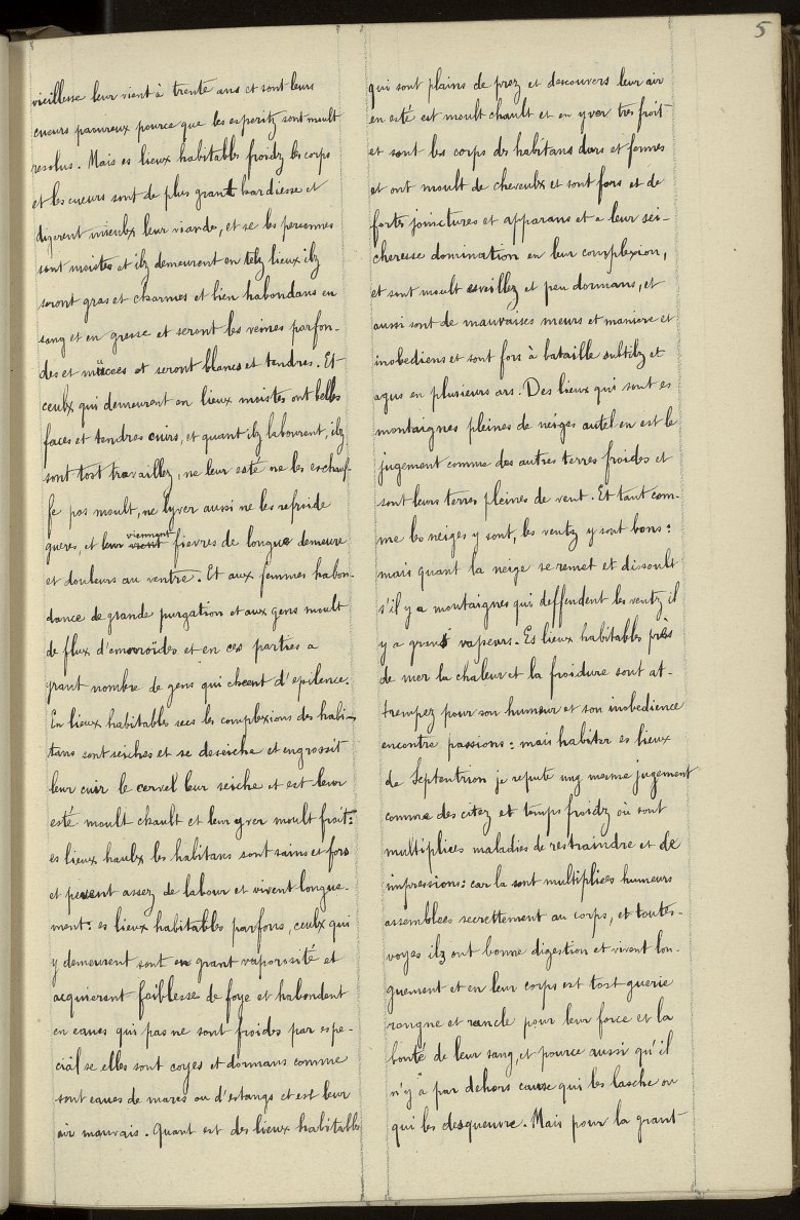 5
vieillesse leur vient à trente ans et sont leurs
cueurs paoureux pource que les esperitz sont moult
resolus. Mais es lieux habitables froidz les corps
et les cueurs sont de plus grant hardiesse et
digerent mieulx leur viande, et se les personnes
sont moistes et ilz demeurent en telz lieux ilz
seront gras et charnus et bien habondans en
sang et en gresse et seront les veines parfon-
des et mücées et seront blancs et tendres. Et
ceulx qui demeurent en lieux moistes ont belles
faces et tendres cuirs, et quant ilz labourent, ilz
sont tost travaillez, ne leur esté ne les eschauf-
fe pas moult, ne lyver aussi ne les refroide
gueres, et leur viennent fievres de longue demeure
et douleurs au ventre. Et aux femmes habon-
dance de grande purgation et aux gens moult
de flux d'emorroïdes et en ces parties a
grant nombre de gens qui cheent d'epilence.
En lieux habitables secs les complexions des habi-
tans sont seiches et se deseiche et engrossit
leur cuir le cervel leur seiche et est leur
esté moult chault et leur yver moult froit:
es lieux haulx les habitans sont sains et fors
et peuent assez de labour et vivent longue-
ment: es lieux habitables parfons, ceulx qui
y demeurent sont en grant vaporosité et
acquierent foiblesse de foye et habondent
en eaues qui pas ne sont froides par espe-
cial se elles sont coyes et dormans comme
sont eaues de mares ou d'estangs et est leur
air mauvais. Quant est des lieux habitables
qui sont plains de prez et descouvers leur air
en esté est moult chault et en yver tres froit
et sont les corps des habitans durs et fermes
et ont moult de cheveulx et sont fors et de
fortes joinctures et apparans et a leur sei-
cheresse domination en leur complexion,
et sont moult esveillez et peu dormans, et
aussi sont de mauvaises meurs et maniere et
inobediens et sont fors à bataille subtilz et
agus en plusieurs ars. Des lieux qui sont es
montaignes pleines de neiges autel en est le
jugement comme des autres terres froides et
sont leurs terres pleines de vent. Et tant com-
me les neiges y sont, les ventz y sont bons:
mais quant la neige se remet et dissoult
s'il y a montaignes qui deffendent les ventz il
y a grans vapeurs. Es lieux habitables près
de mer la chaleur et la froidure sont at-
trempez pour son humeur et son inobedience
encontre passions: mais habiter es lieux
de Septentrion je repute ung mesme jugement
comme des citez et temps froidz où sont
multipliees maladies de restraindre et de
impressions: car la sont multipliees humeurs
assemblees secrettement au corps, et toutes-
voyes ilz ont bonne digestion et vivent lon-
guement et en leur corps est tost guerie
rongne et rancle pour leur force et la
bonté de leur sang, et pource aussi qu'il
n'y a par dehors cause qui les lasche ou
qui les desqueuvre. Mais pour la grant